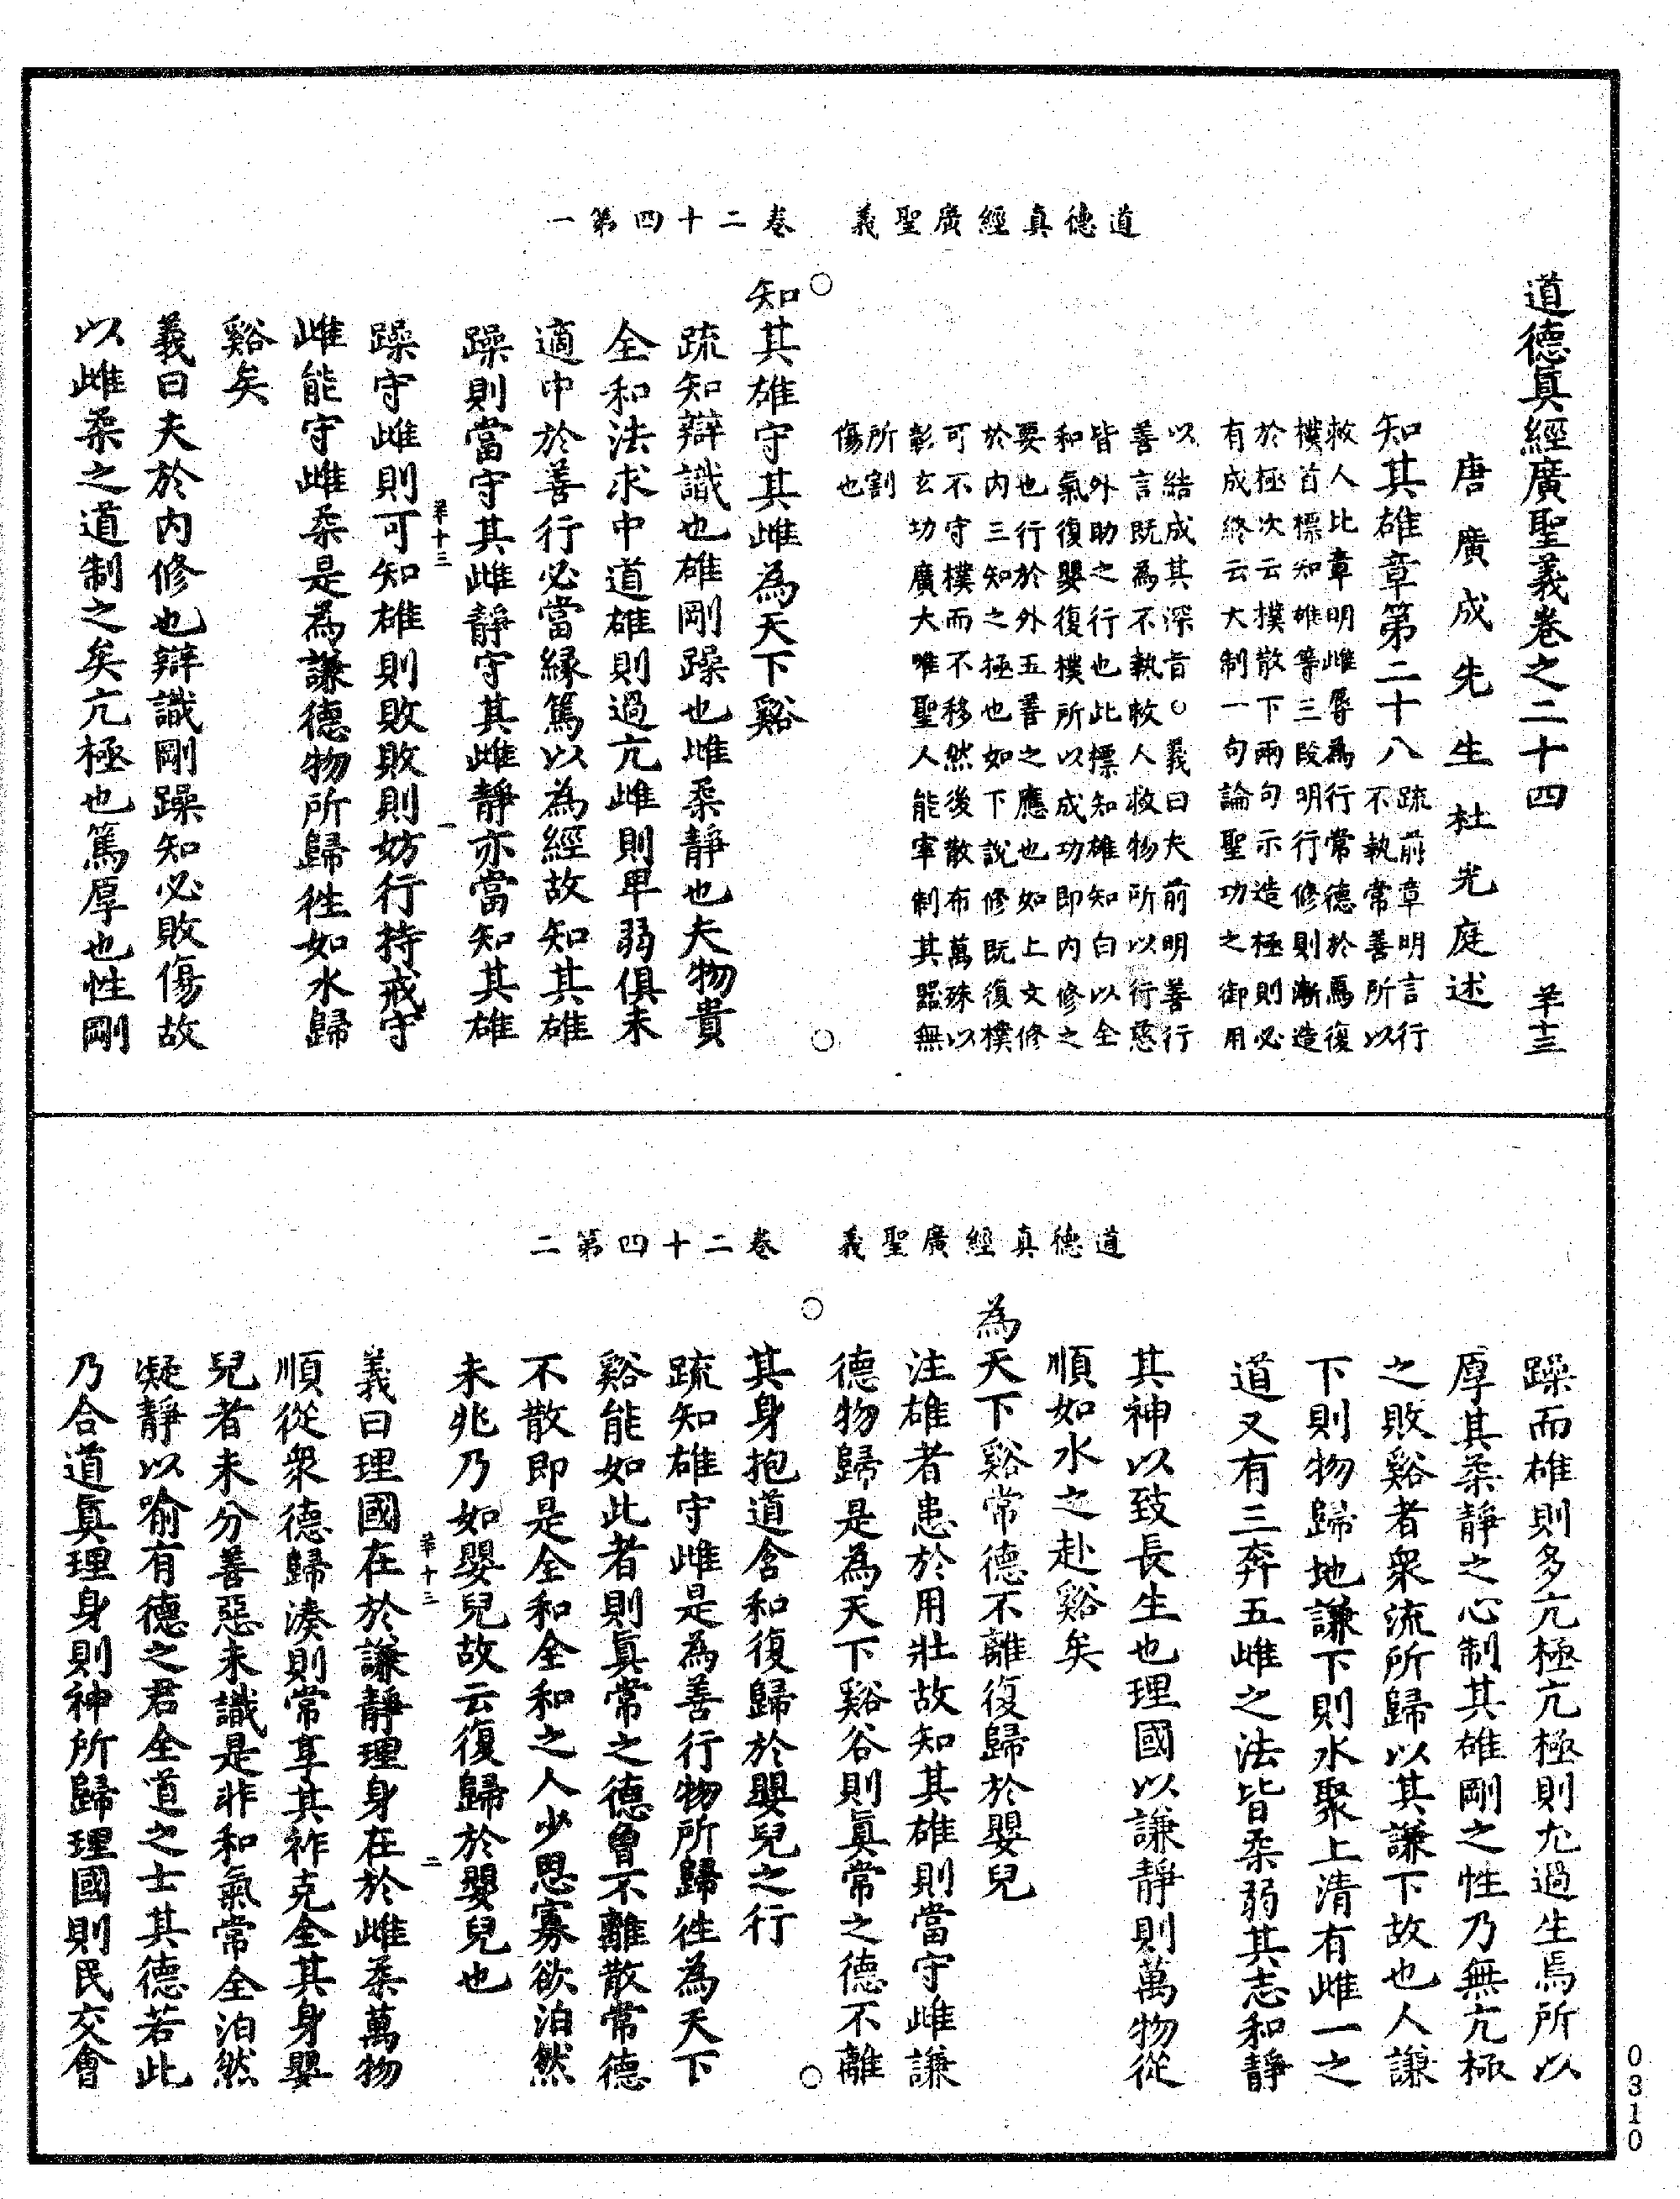 道德真經廣聖義　卷二十四第一
道德真經廣聖義卷之二十四　羊十三
唐廣成先生杜光庭述
知其雄章第二十八
疏前章明言行
不執常善所以
救人比章明雌辱為行常德於焉復
樸首標知雄等三段明行修則漸造
於極次云樸散下兩句示造極則必
有成終云大制一句論聖功之御用
以結成其深旨○義曰夫前明善行
善言既為不執救人救物所以行慈
皆外助之行也此標知雄知白以全
和氣復嬰復樸所以成功即內修之
要也行於外五善之應也如上文修
於內三知之極也如下說修既復樸
可不守樸而不移然後散布萬殊以
彰玄功廣大唯聖人能宰制其器無
所割
傷也
知其雄守其雌為天下谿
疏知辯識也雄剛躁也雌柔靜也夫物貴
全和法求中道雄則過亢雌則卑弱俱未
適中於善行必當緣篤以為經故知其雄
躁則當守其雌靜守其雌靜亦當知其雄
羊十三　一
躁守雌則可知雄則敗敗則妨行持戒守
雌能守雌柔是為謙德物所歸徃如水歸
谿矣
義曰夫於內修也辯識剛躁知必敗傷故
以雌柔之道制之矣亢極也篤厚也性剛
道德真經廣聖義　卷二十四第二
躁而雄則多亢極亢極則尤過生焉所以
厚其柔靜之心制其雄剛之性乃無亢極
之敗谿者眾流所歸以其謙下故也人謙
下則物歸地謙下則水聚上清有雌一之
道又有三奔五雌之法皆柔弱其志和靜
其神以致長生也理國以謙靜則萬物從
順如水之赴谿矣
為天下谿常德不離復歸於嬰兒
注雄者患於用壯故知其雄則當守雌謙
德物歸是為天下谿谷則真常之德不離
其身抱道含和復歸於嬰兒之行
疏知雄守雌是為善行物所歸徃為天下
谿能如此者則真常之德曾不離散常德
不散即是全和全和之人少思寡欲泊然
未兆乃如嬰兒故云復歸於嬰兒也
羊十三　二
義曰理國在於謙靜理身在於雌柔萬物
順從眾德歸湊則常享其祚克全其身嬰
兒者未分善惡未識是非和氣常全泊然
凝靜以喻有德之君全道之士其德若此
乃合道真理身則神所歸理國則民交會
0310